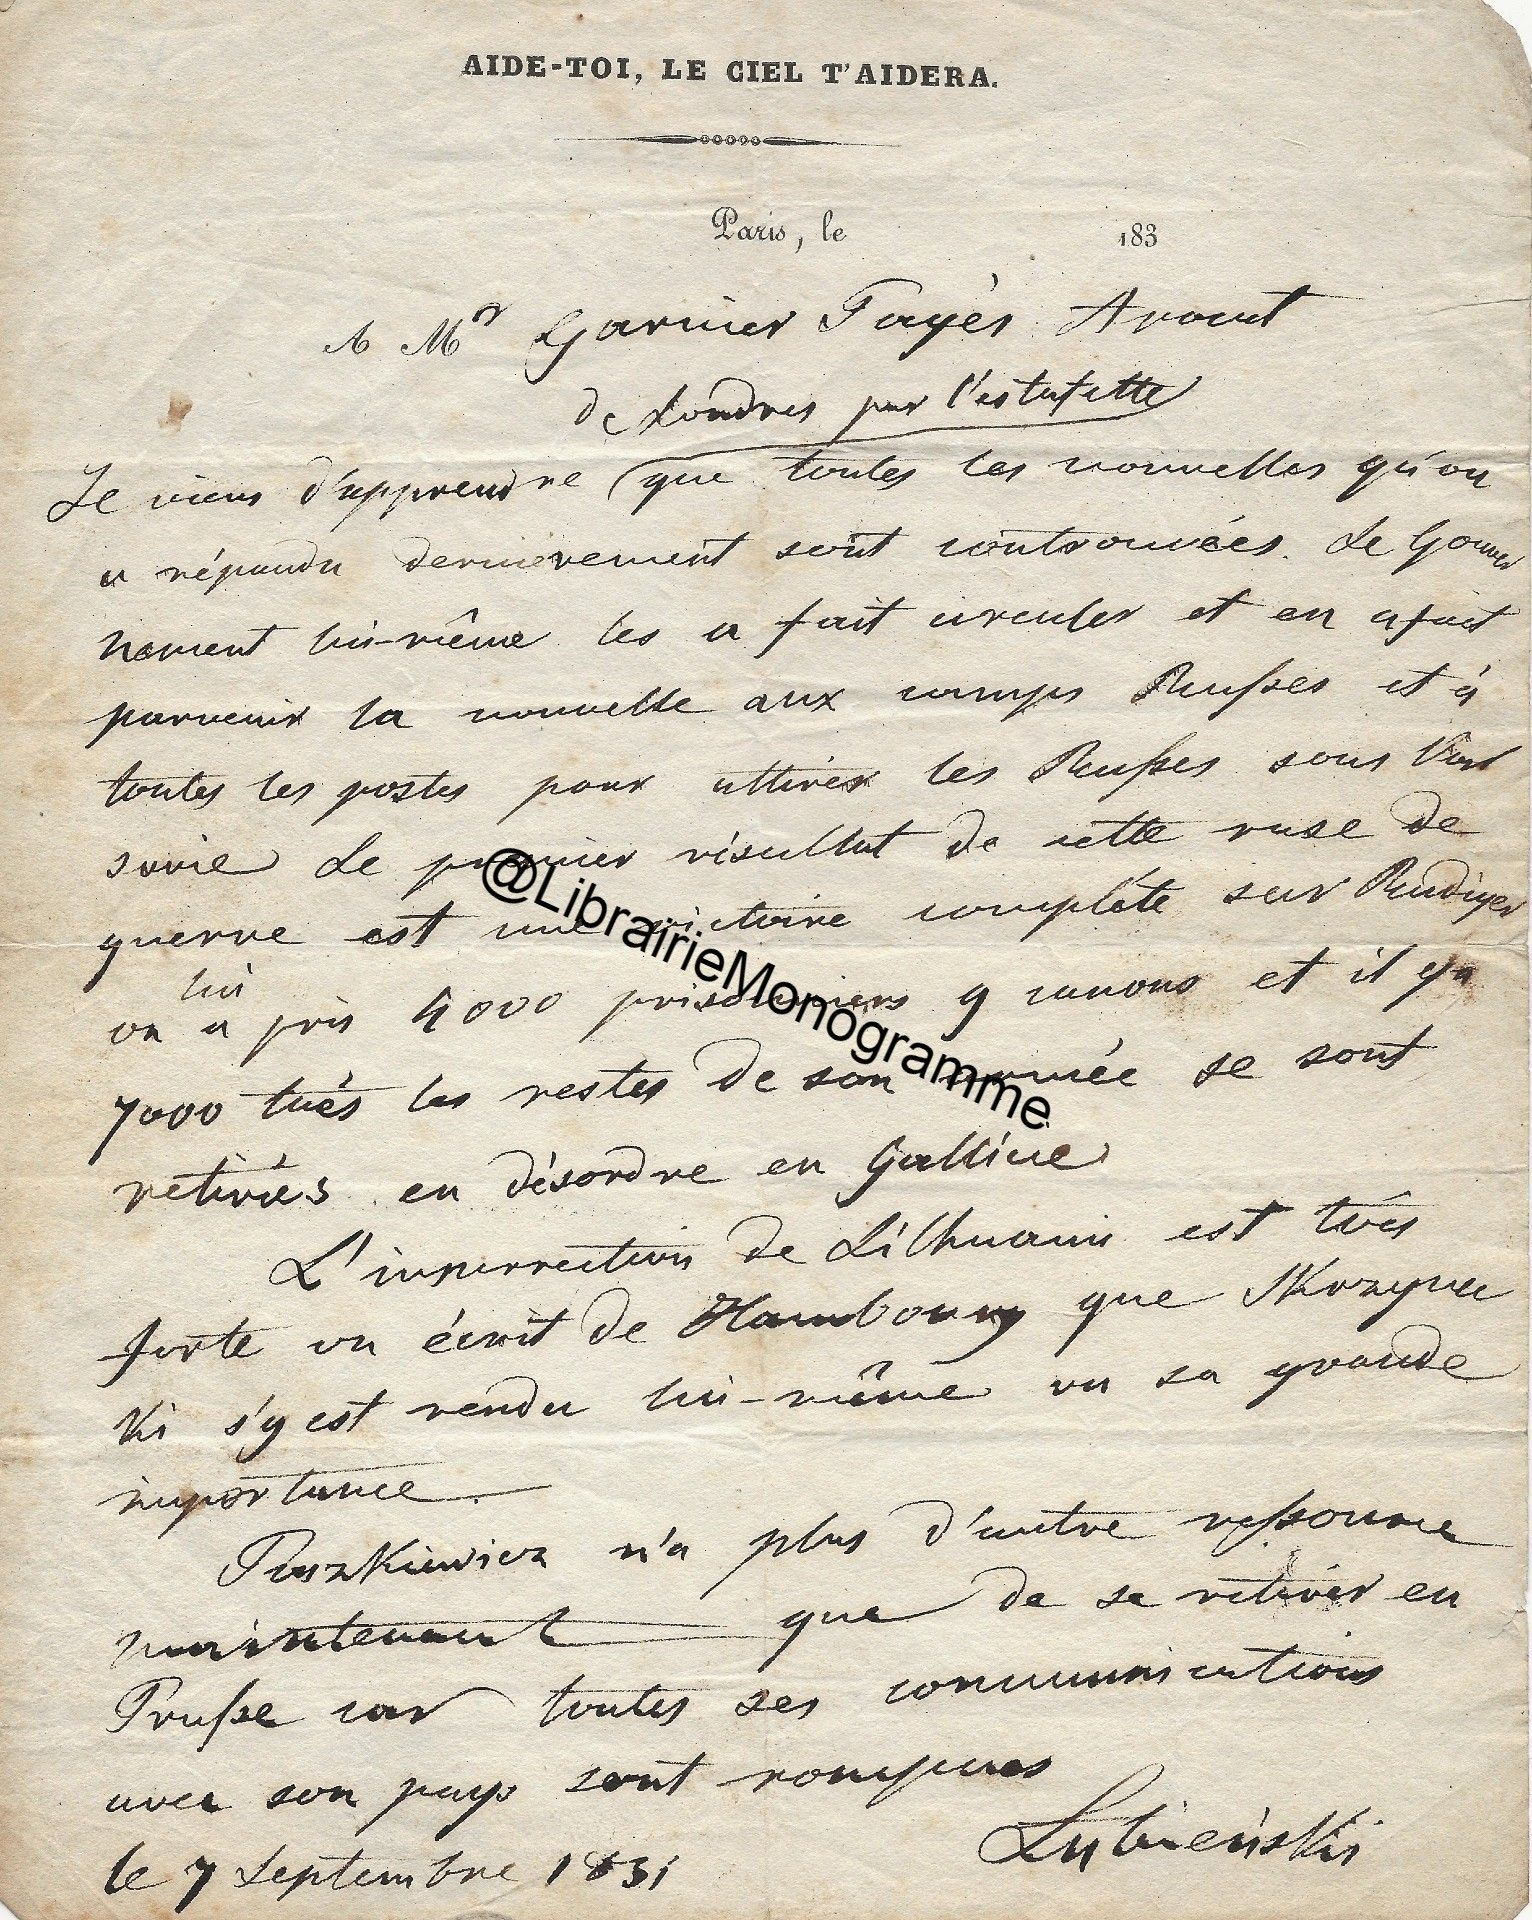 AIDE-TOI, LE CIEL T'AIDERA.
Paris, le 183
A Mr Garnier Pagès Avocat
de Londres par l'estafette
Je viens d'apprendre que toutes les nouvelles qu'on
a répandu dernièrement sont controuvées. Le Gouver
nement lui-même les a fait circuler et en a fait
parvenir la nouvelle aux camps Russes et à
toutes les postes pour attirer les Russes sous Var
sovie Le premier résultat de cette ruse de
guerre est une victoire complète sur Rudiger
lui
on a pris 4000 prisonniers 9 canons et il y a
7000 tués les restes de son armée se sont
retirées en désordre en Gallicie
L'insurrection de Lithuanie est très
forte on écrit de Hambourg que Skrzynec
ki s'y est rendu lui-même vu sa grande
importance.
Paszkiewicz n'a plus d'autre ressource
maintenant que de se retirer en
Prusse car toutes ses communications
avec son pays sont rompues
Lubieński
le 7 Septembre 1831
@LibrairieMonogramme